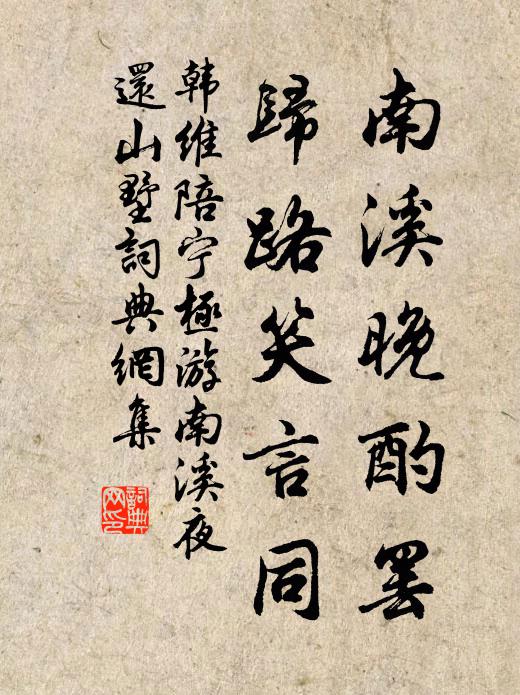 南溪晚酌罢
歸路笑言同
韩維陪宁極游南溪夜
還山墅詞典網集
詞典網印